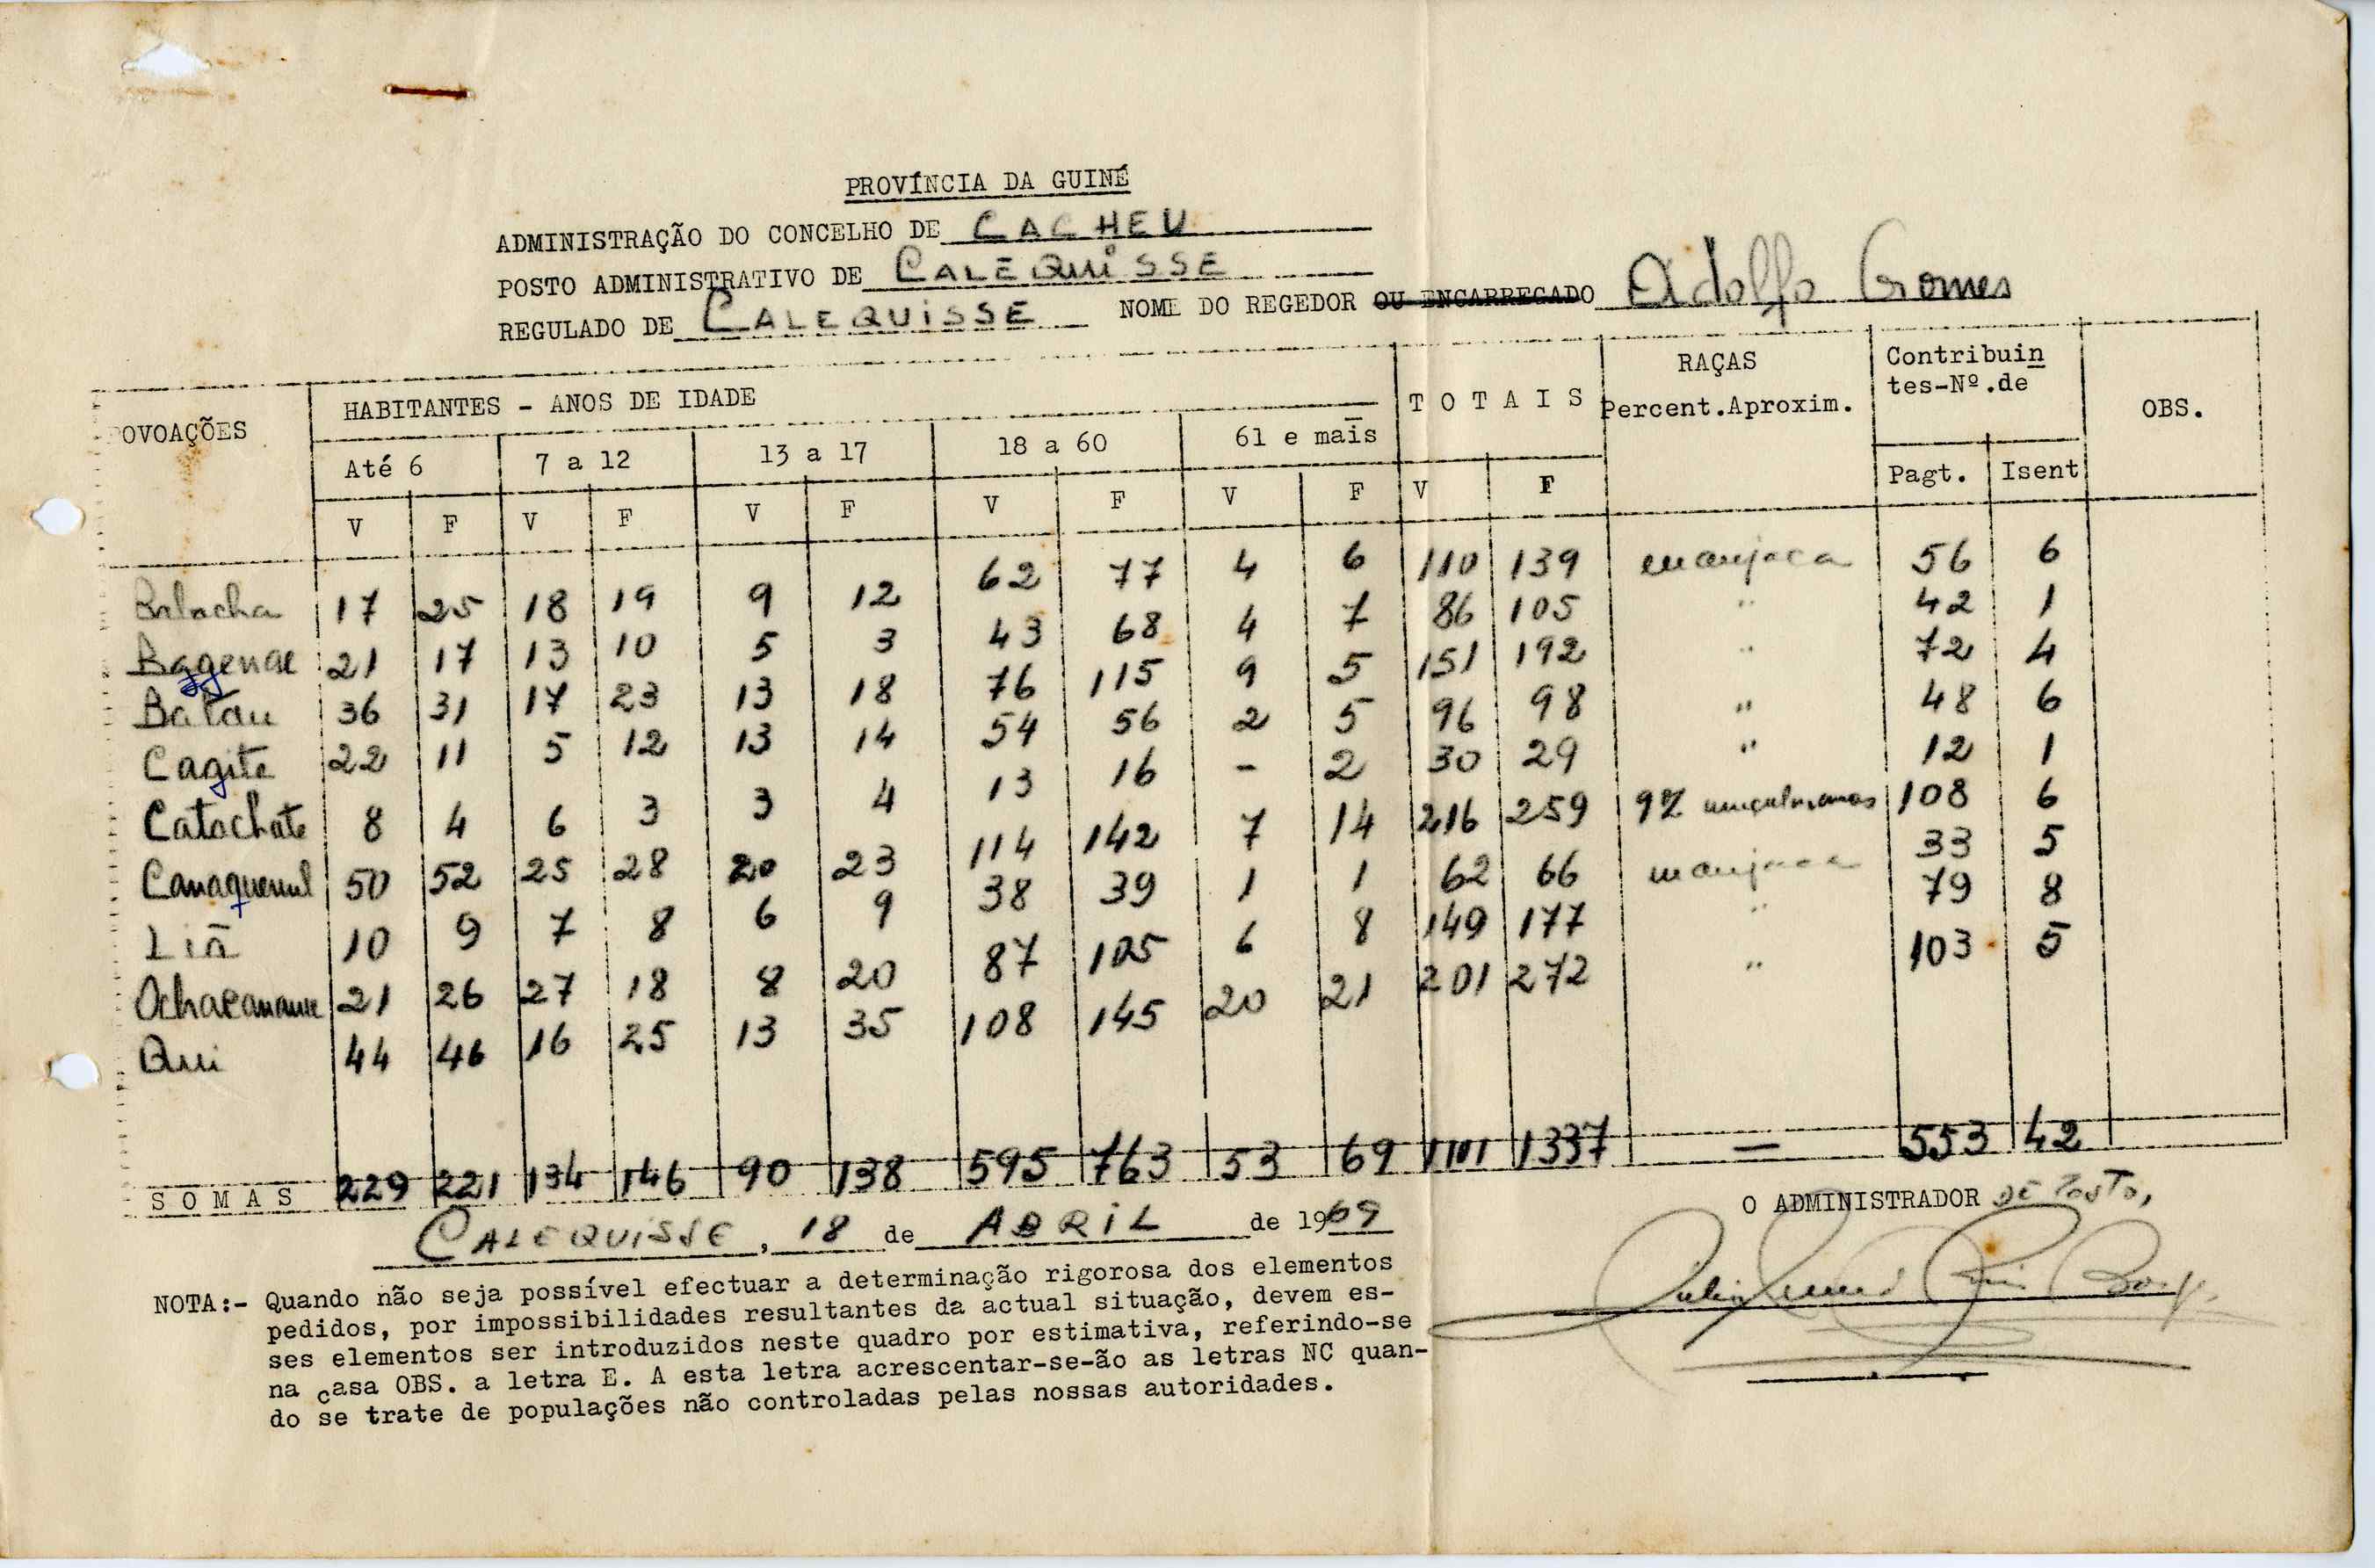 PROVÍNCIA DA GUINÉ
ADMINISTRAÇÃO DO CONCELHO DE CACHEU
POSTO ADMINISTRATIVO DE CALEQUISSE
REGULADO DE CALEQUISSE NOME DO REGEDOR OU ENCARREGADO Adolfo Gomes
OVOAÇÕES HABITANTES - ANOS DE IDADE T O T A I S RAÇAS Percent.Aproxim. Contribuin tes-Nº.de OBS.
Até 6 7 a 12 13 a 17 18 a 60 61 e mais Pagt. Isent
V F V F V F V F V F V F
Balacha 17 25 18 19 9 12 62 77 4 6 110 139 manjaca 56 6
21 17 13 10 5 3 43 68 4 7 86 105 " 42 1
Batau 36 31 17 23 13 18 76 115 9 5 151 192 " 72 4
Cagite 22 11 5 12 13 14 54 56 2 5 96 98 " 48 6
Catachate 8 4 6 3 3 4 13 16 - 2 30 29 " 12 1
50 52 25 28 20 23 114 142 7 14 216 259 9% muçulmanos 108 6
Liã 10 9 7 8 6 9 38 39 1 1 62 66 manjaca 33 5
21 26 27 18 8 20 87 105 6 8 149 177 " 79 8
Qui 44 46 16 25 13 35 108 145 20 21 201 272 " 103 5
S O M A S 229 221 134 146 90 138 595 763 53 69 1101 1337 — 553 42
CALEQUISSE, 18 de ABRIL de 1969
O ADMINISTRADOR DE POSTO,
NOTA:- Quando não seja possível efectuar a determinação rigorosa dos elementos
pedidos, por impossibilidades resultantes da actual situação, devem es-
ses elementos ser introduzidos neste quadro por estimativa, referindo-se
na casa OBS. a letra E. A esta letra acrescentar-se-ão as letras NC quan-
do se trate de populações não controladas pelas nossas autoridades.